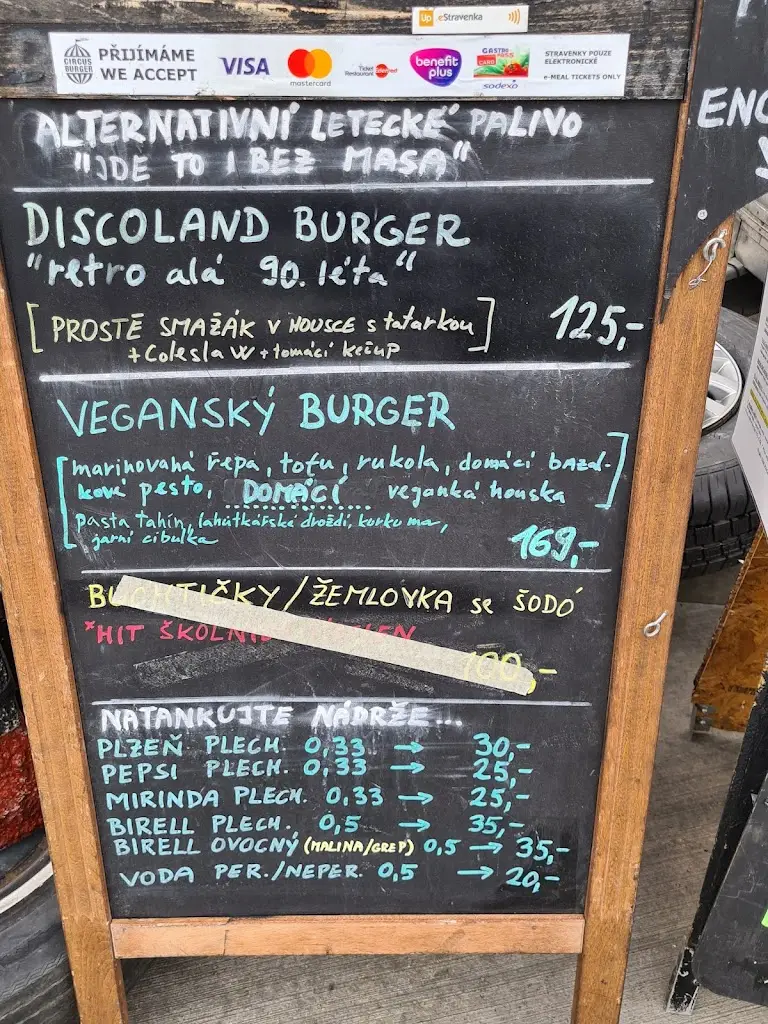 üp eStravenka
CIRCUS BURGER
PŘIJÍMÁME
WE ACCEPT
VISA
mastercard
Ticket Restaurant
benefit plus
GASTRO PASS CARD
sodexo
STRAVENKY POUZE
ELEKTRONICKÉ
e-MEAL TICKETS ONLY
ALTERNATIVNÍ LETECKÉ PALIVO
"JDE TO I BEZ MASA"
DISCOLAND BURGER
"retro alá 90. léta"
[PROSTĚ SMAŽÁK V HOUSCE s tatarkou]
+ Colesla W + tomácí kečup
125,-
VEGANSKÝ BURGER
[marinovaná řepa, tofu, rukola, domácí bazal-
kové pesto, DOMÁCÍ veganká houska]
pasta tahin, lahůdkářské droždí, kurkuma,
jarní cibulka
169,-
BUCHTIČKY/ŽEMLOVKA se ŠODÓ
*HIT ŠKOLNÍ
100,-
NATANKUJTE NÁDRŽE...
PLZEŇ PLECH. 0,33 → 30,-
PEPSI PLECH. 0,33 → 25,-
MIRINDA PLECH. 0,33 → 25,-
BIRELL PLECH. 0,5 → 35,-
BIRELL OVOCNÝ (MALINA/GREP) 0,5 → 35,-
VODA PER./NEPER. 0,5 → 20,-
ENG